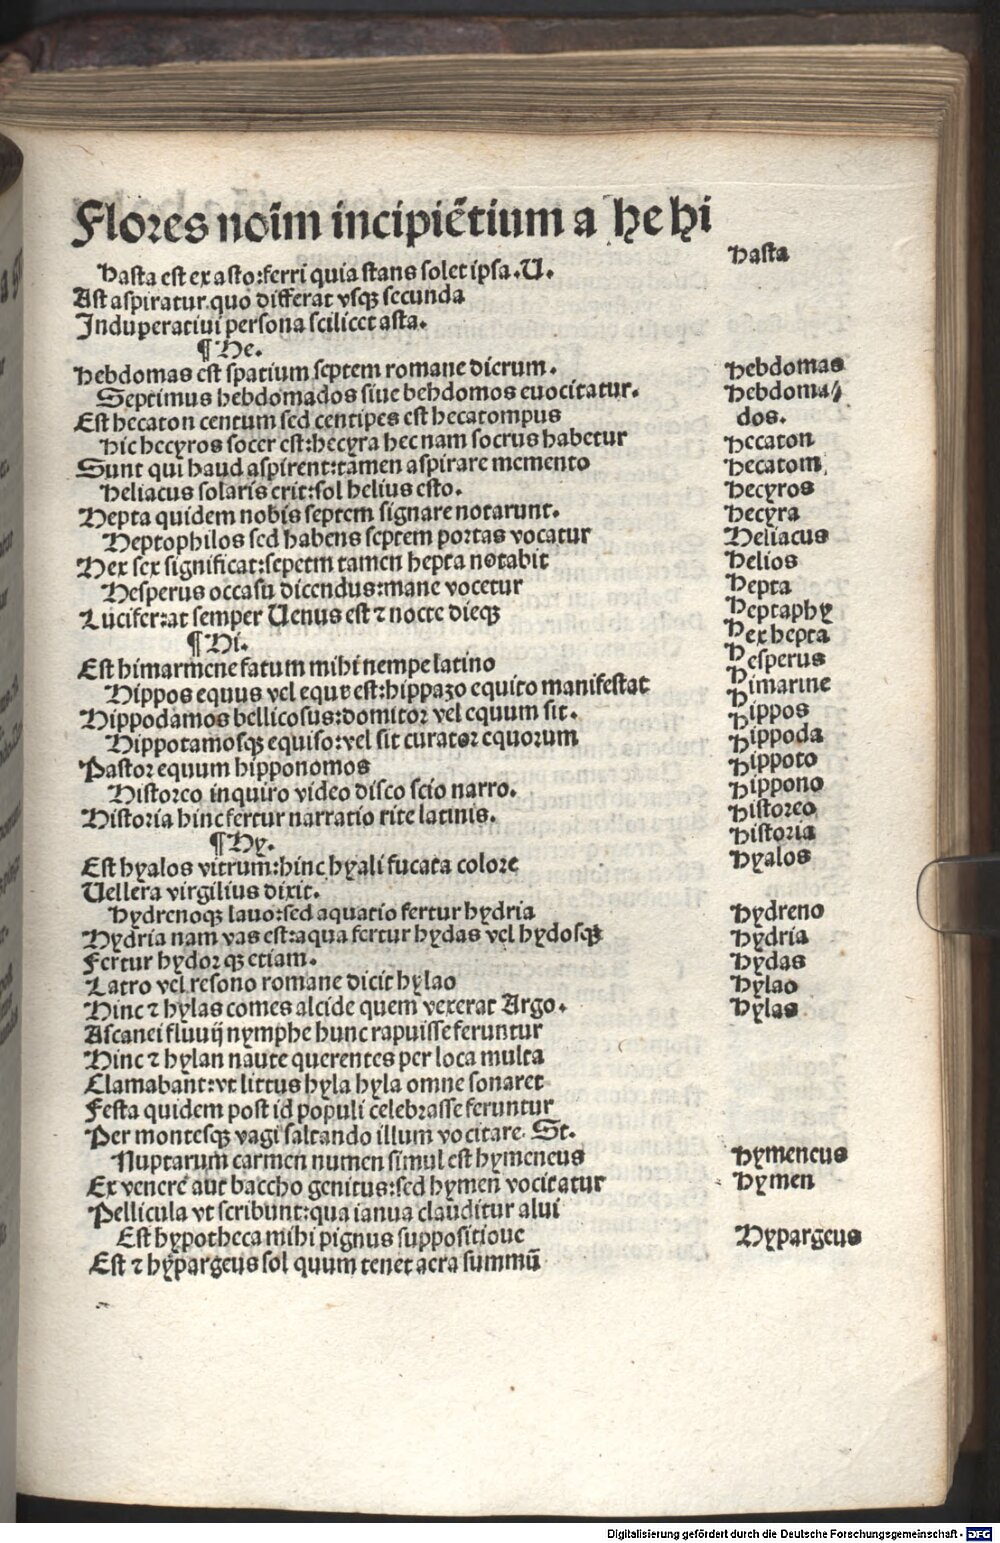 Flores noīm incipiētium a he hi
Hasta est ex asto:ferri quia stans solet ipsa.U.
Hasta
Ast aspiratur.quo differat vsqꝫ secunda
Induperatiui persona scilicet asta.
¶ He.
Hebdomas est spatium septem romane dierum.
Hebdomas
Septimus hebdomados siue hebdomos euocitatur.
Hebdoma⸗
Est hecaton centum sed centipes est hecatompus
dos.
Hic hecyros socer est:hecyra hec nam socrus habetur
Hecaton
Sunt qui haud aspirent:tamen aspirare memento
Hecatom
Heliacus solaris erit:sol helius esto.
Hecyros
Hepta quidem nobis septem signare notarunt.
Hecyra
Heptophilos sed habens septem portas vocatur
Heliacus
Hex sex significat:sepetm tamen hepta notabit
Helios
Hesperus occasu dicendus:mane vocetur
Hepta
Lucifer:at semper Uenus est ⁊ nocte dieqꝫ
Heptaphy
¶ Hi.
Hexhepta
Est himarmene fatum mihi nempe latino
Hesperus
Hippos equus vel eque est:hippazo equito manifestat
Himarme
Hippodamos bellicosus:domitor vel equum sit.
Hippos
Hippotamosqꝫ equiso:vel sit curator equorum
Hippoda
Pastor equum hipponomos
Hippoto
Historeo inquiro video disco scio narro.
Hippono
Historia hinc fertur narratio rite latinis.
Historeo
¶ Hy.
Historia
Est hyalos vitrum:hinc hyali fucata colore
Hyalos
Uellera virgilius dixit.
Hydrenoqꝫ lauo:sed aquatio fertur hydria
Hydreno
Hydria nam vas est:aqua fertur hydas vel hydosqꝫ
Hydria
Fertur hydor qꝫ etiam.
Hydas
Latro vel resono romane dicit hylao
Hylao
Hinc ⁊ hylas comes alcide quem vexerat Argo.
Hylas
Ascanei fluuij nymphe hunc rapuisse feruntur
Hinc ⁊ hylan naute querentes per loca multa
Clamabant:vt littus hyla hyla omne sonaret
Festa quidem post id populi celebrasse feruntur
Per montesqꝫ vagi saltando illum vocitare. St.
Nuptarum carmen numen simul est hymeneus
Hymeneus
Ex venere aut baccho genitus:sed hymen vocitatur
Hymen
Pellicula vt scribunt:qua ianua clauditur alui
Est hypotheca mihi pignus suppositioue
Hypargeus
Est ⁊ hypargeus sol quum tenet aera summū
Digitalisierung gefördert durch die Deutsche Forschungsgemeinschaft - DFG